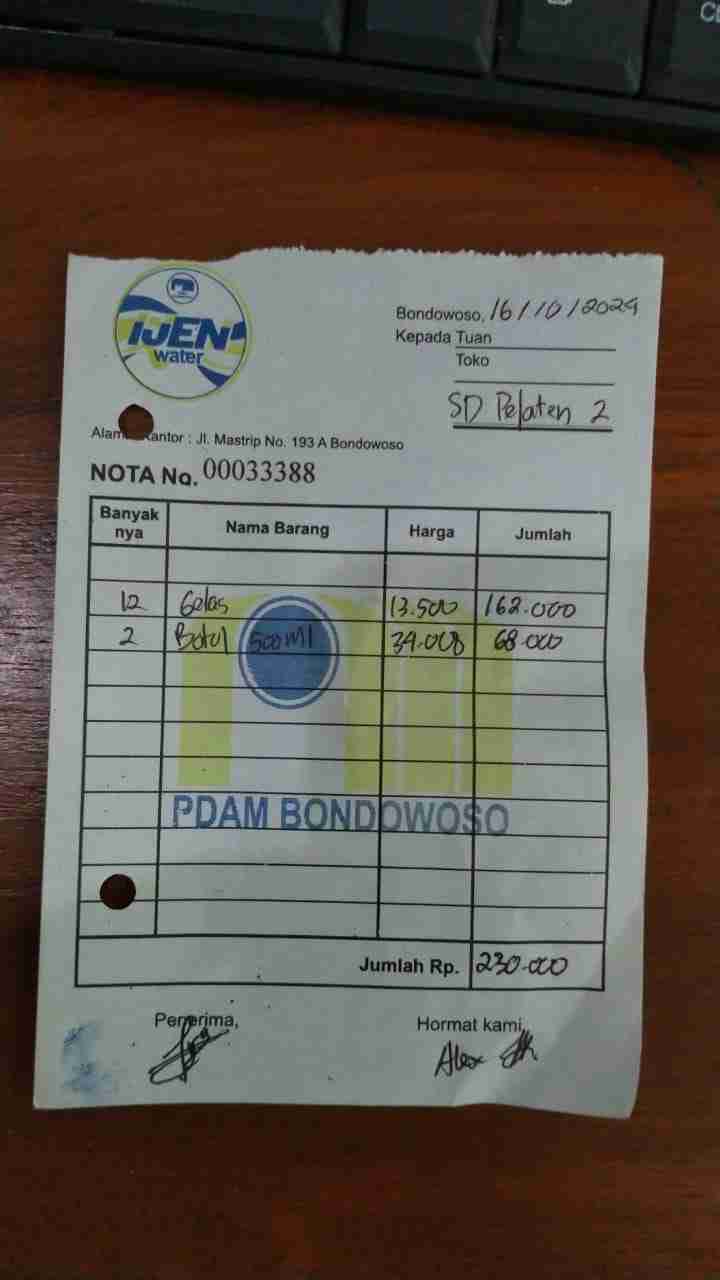 IJEN
water
Bondowoso, 16/10/2024
Kepada Tuan
Toko
SD Pelaten 2
Alam Kantor : Jl. Mastrip No. 193 A Bondowoso
NOTA No. 00033388
Banyak nya Nama Barang Harga Jumlah
12 Gelas 13.500 162.000
2 Botol 500 Ml 34.000 68.000
PDAM BONDOWOSO
Jumlah Rp. 230.000
Penerima, Hormat kami,
Alex